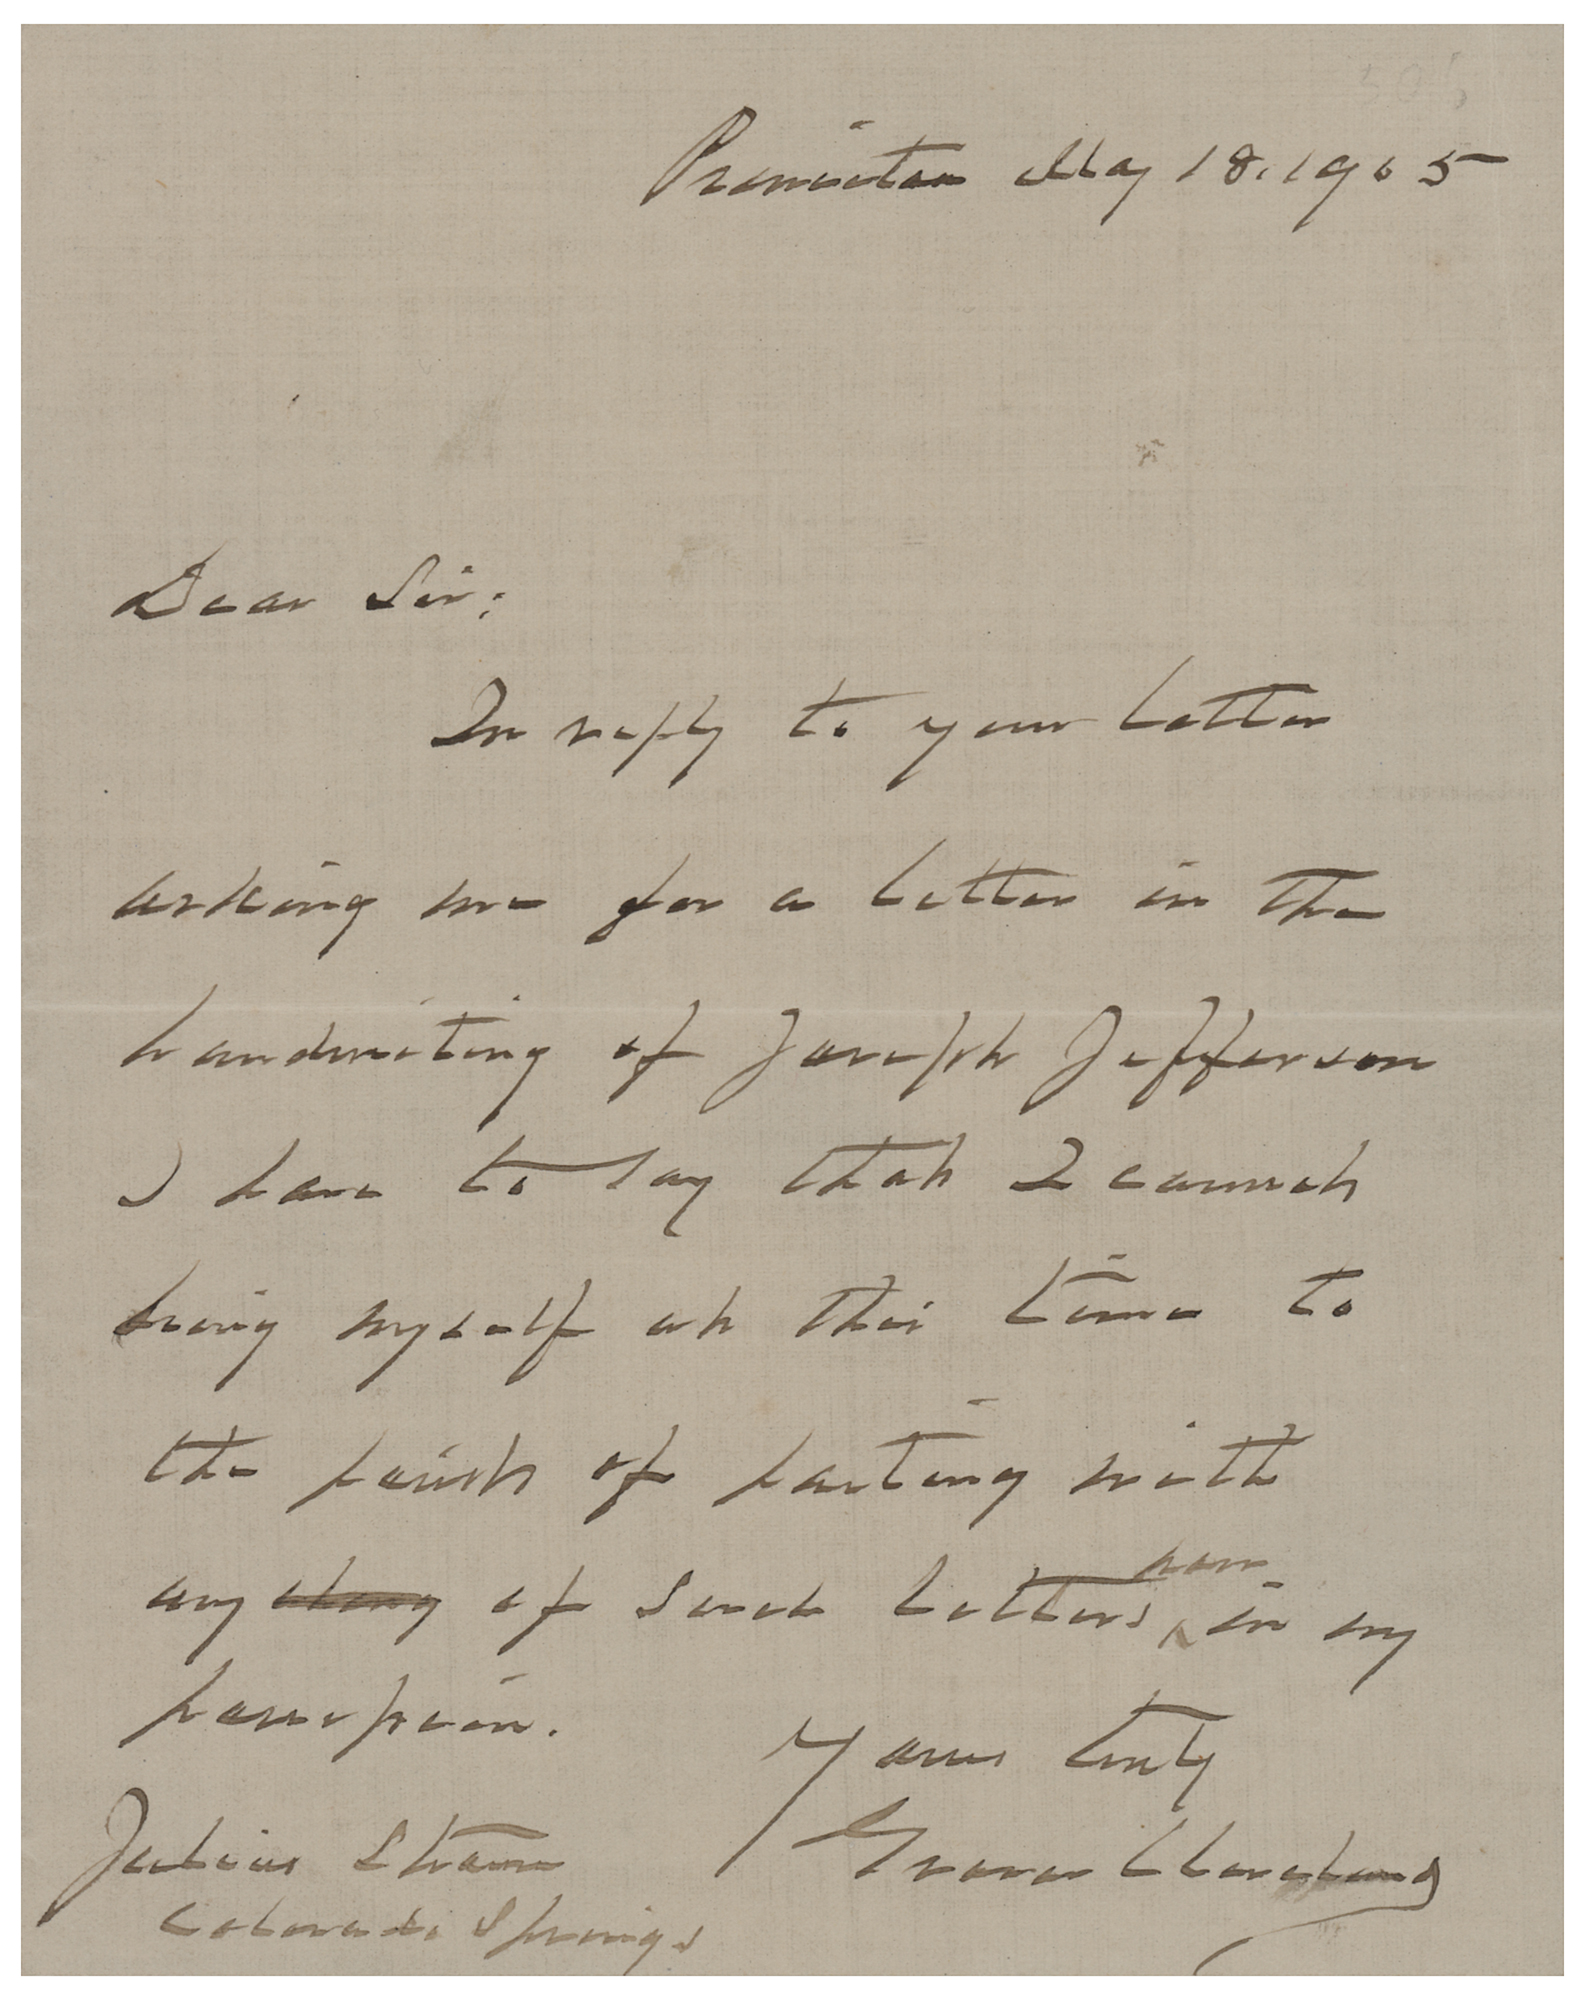 Princeton May 18. 1905
Dear Sir:
In reply to your letter
asking me for a letter in the
handwriting of Joseph Jefferson
I have to say that I cannot
bring myself at this time to
the point of parting with
any of such letters now in my
possession.
Yours truly
Grover Cleveland
Julius
Colorado Springs